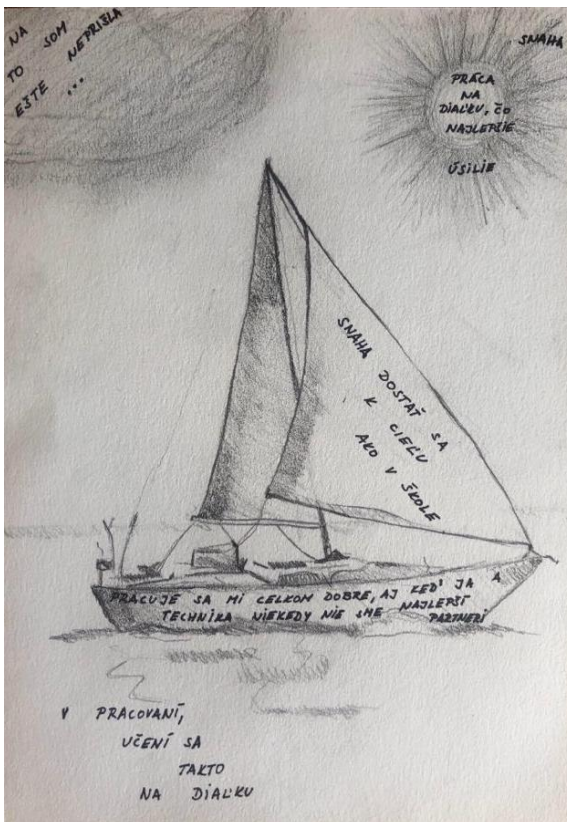 NA
SOM
TO NEPRIŠLA
EŠTE ...
SNAHA
PRÁCA
NA
DIAĽKU, ČO
NAJLEPŠIE
ÚSILIE
SNAHA DOSTAŤ SA
K CIEĽU
AKO V ŠKOLE
PRACUJE SA MI CELKOM DOBRE, AJ KEĎ JA A
TECHNIKA NIEKEDY NIE SME NAJLEPŠÍ
PARTNERI
V PRACOVANÍ,
UČENÍ SA
TAKTO
NA DIAĽKU